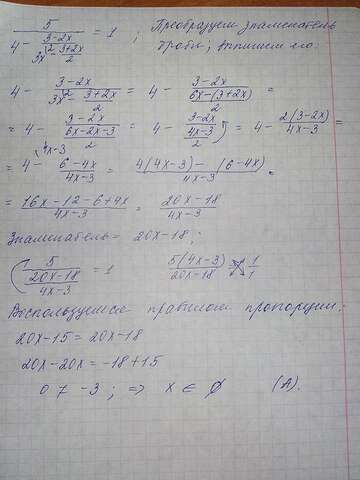 5/(4 - (3-2x)/(3x^2 - (3+2x)/2)) = 1 ; Преобразуем знаменатель
дроби; выпишем его:
4 - (3-2x)/(3x^2 - (3+2x)/2) = 4 - (3-2x)/((6x-(3+2x))/2) =
= 4 - (3-2x)/((6x-2x-3)/2) = 4 - (3-2x)/((4x-3)/2) = 4 - 2(3-2x)/(4x-3) =
= 4^(4x-3) - (6-4x)/(4x-3) = (4(4x-3) - (6-4x))/(4x-3) =
= (16x-12-6+4x)/(4x-3) = (20x-18)/(4x-3)
Знаменатель = 20x-18;
5/((20x-18)/(4x-3)) = 1 5(4x-3)/(20x-18) 1/1
Воспользуемся правилом пропорции:
20x-15 = 20x-18
20x-20x = -18+15
0 ≠ -3 ; => x ∈ ∅ (A).